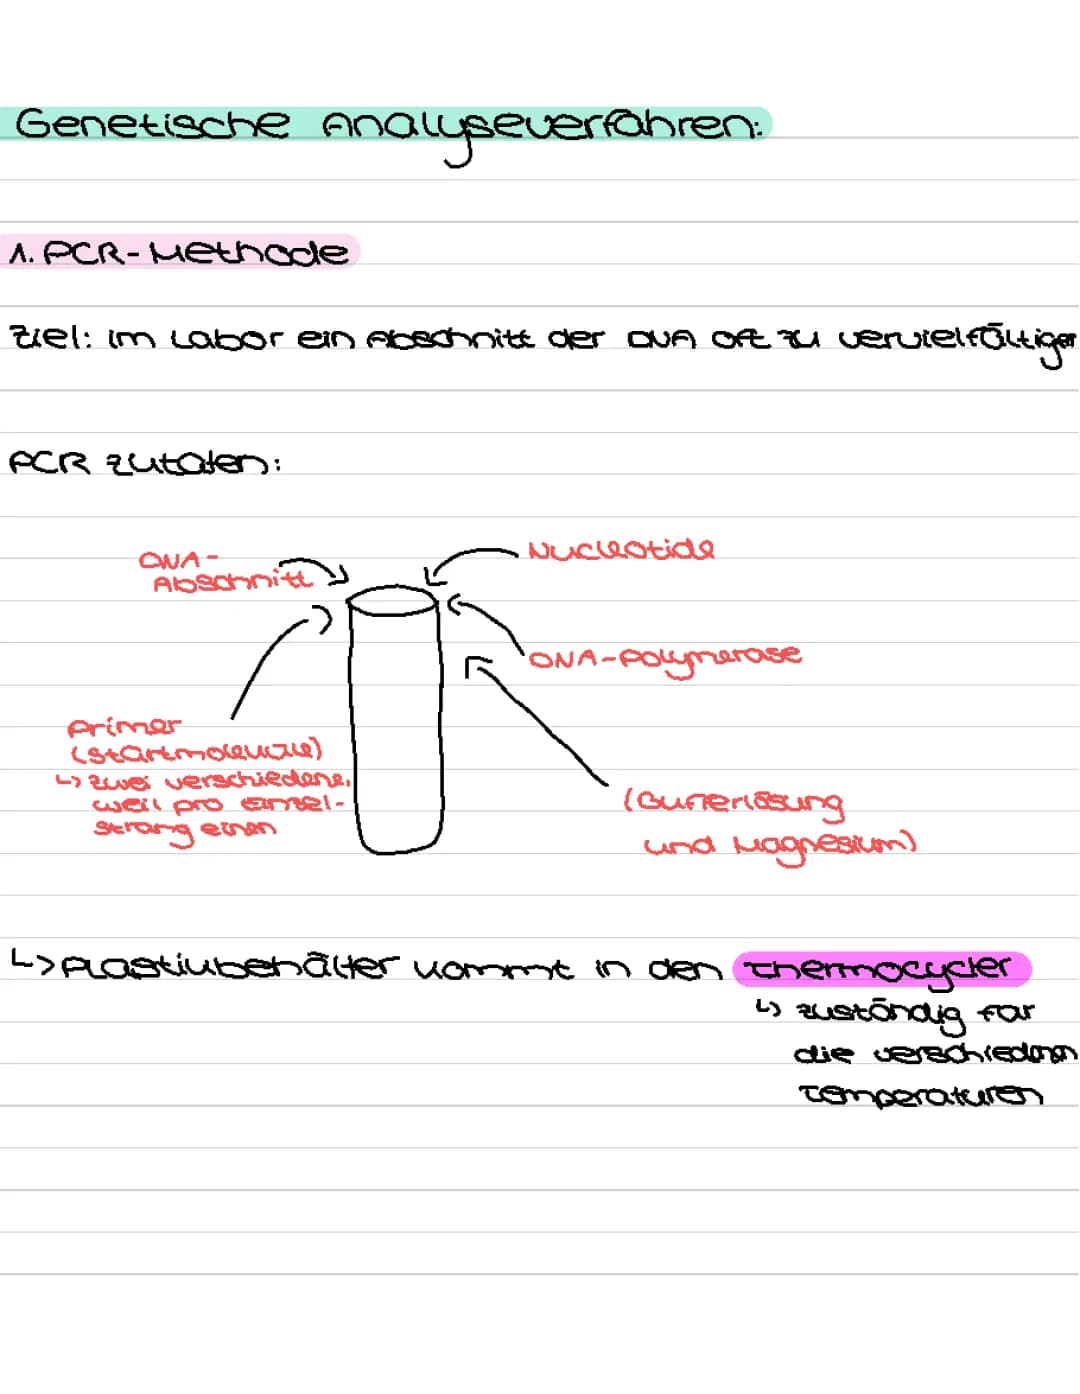 Genetische Analyseverfahren:
1. PCR-Methode
Ziel: im Labor ein Abschnitt der DNA oft zu vervielfältigen
PCR Zutaten:
DNA-
Abschnitt
Nucleotide
DNA-Polymerase
Primer
(Startmoleküle)
↳ zwei verschiedene,
weil pro Einzel-
strang einen
(Bufferlösung
und Magnesium)
↳ Plastikbehälter kommt in den Thermocycler
↳ zuständig für
die verschiednen
Temperaturen